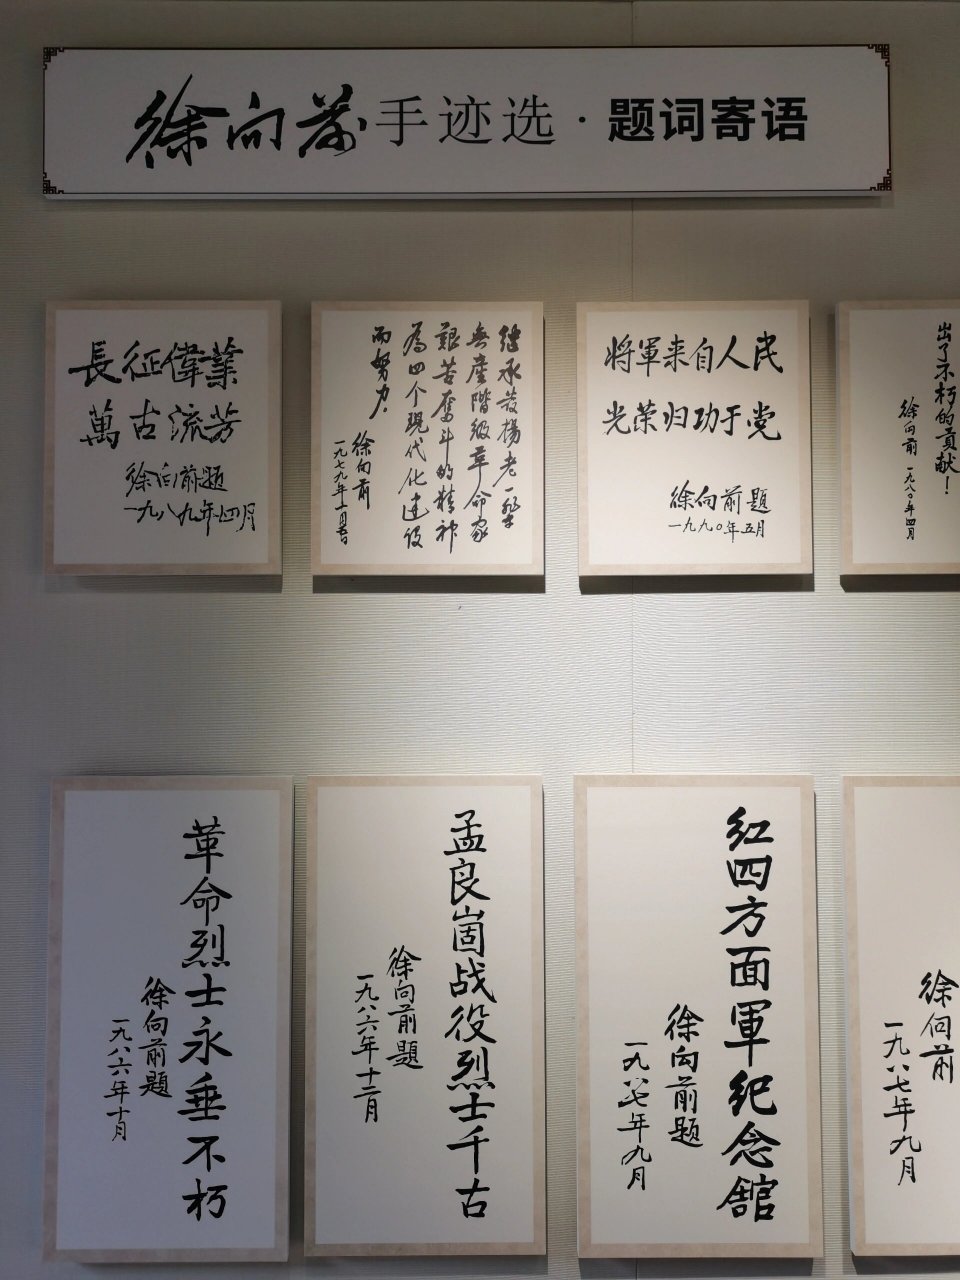 徐向前手迹选·题词寄语
長征偉業
萬古流芳
徐向前题
一九八九年四月
继承發揚老一輩
無産階級革命家
艱苦奮斗的精神
為四个現代化建设
而努力.
徐向前
一九七九年
将軍来自人民
光荣归功于党
徐向前题
一九九〇年五月
出了不朽的貢献！
徐向前
一九八〇年四月
革命烈士永垂不朽
徐向前题
一九八六年十月
孟良崮战役烈士千古
徐向前题
一九八六年十二月
红四方面軍纪念舘
徐向前题
一九八七年九月
徐向前
一九八七年九月